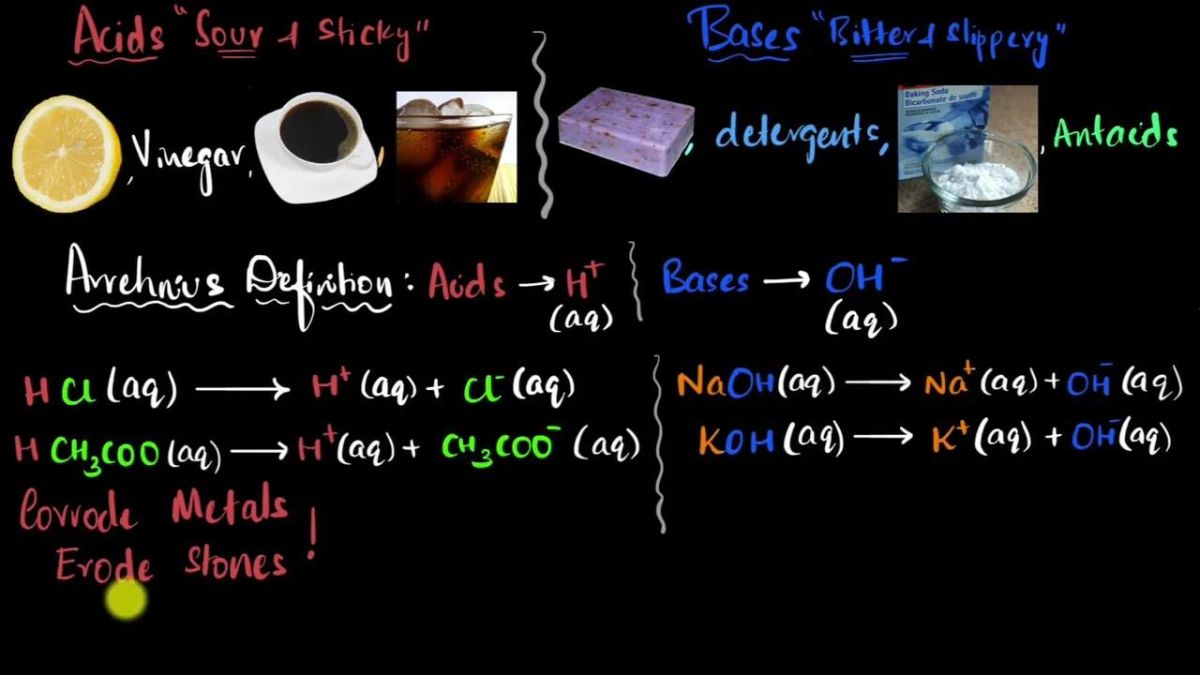 Acids "Sour & Sticky"
Bases "Bitter & Slippery"
, Vinegar, ,
, detergents, , Antacids
Baking Soda
Bicarbonate de soude
Arrehnius Definition: Acids → H⁺ (aq)
Bases → OH⁻ (aq)
HCl (aq) → H⁺ (aq) + Cl⁻ (aq)
HCH₃COO (aq) → H⁺ (aq) + CH₃COO⁻ (aq)
Corrode Metals
Erode Stones !
NaOH (aq) → Na⁺ (aq) + OH⁻ (aq)
KOH (aq) → K⁺ (aq) + OH⁻ (aq)